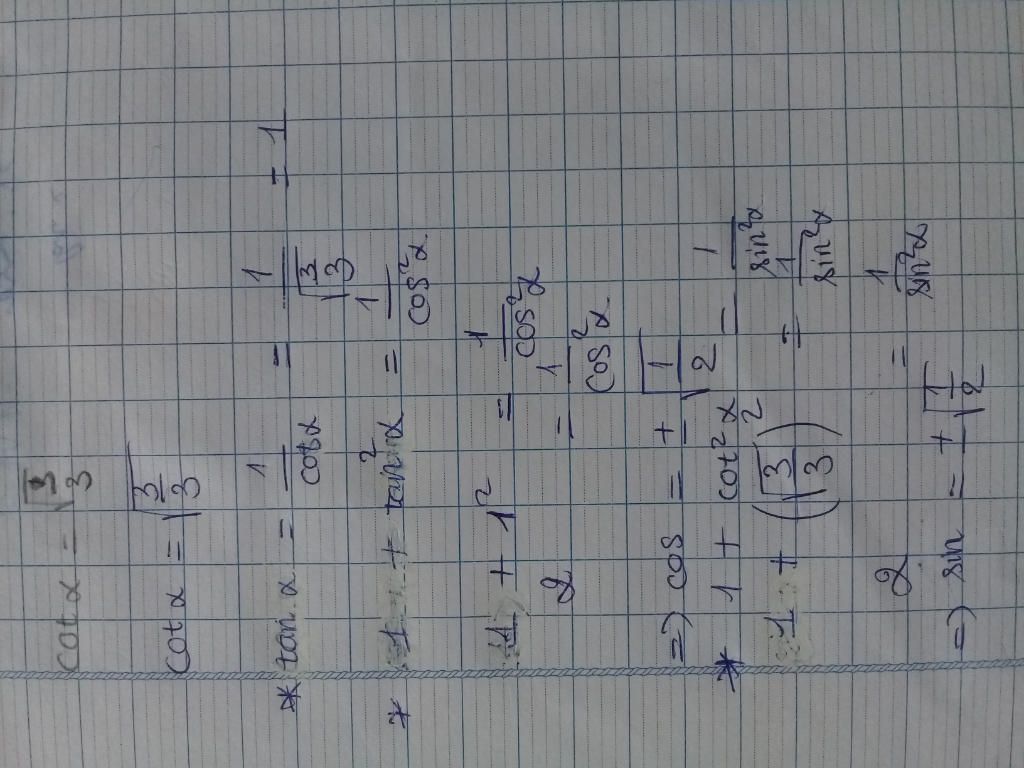 cot α = √3/3
cot α = √(3/3)
* tan α = 1/cot α = 1/√(3/3) = 1
* 1 + tan² α = 1/cos² α
1 + 1² = 1/cos² α
2 = 1/cos² α
=) cos = ± √(1/2)
* 1 + cot² α = 1/sin² α
1 + (√(3/3))² = 1/sin² α
2 = 1/sin² α
=) sin = ± √(1/2)